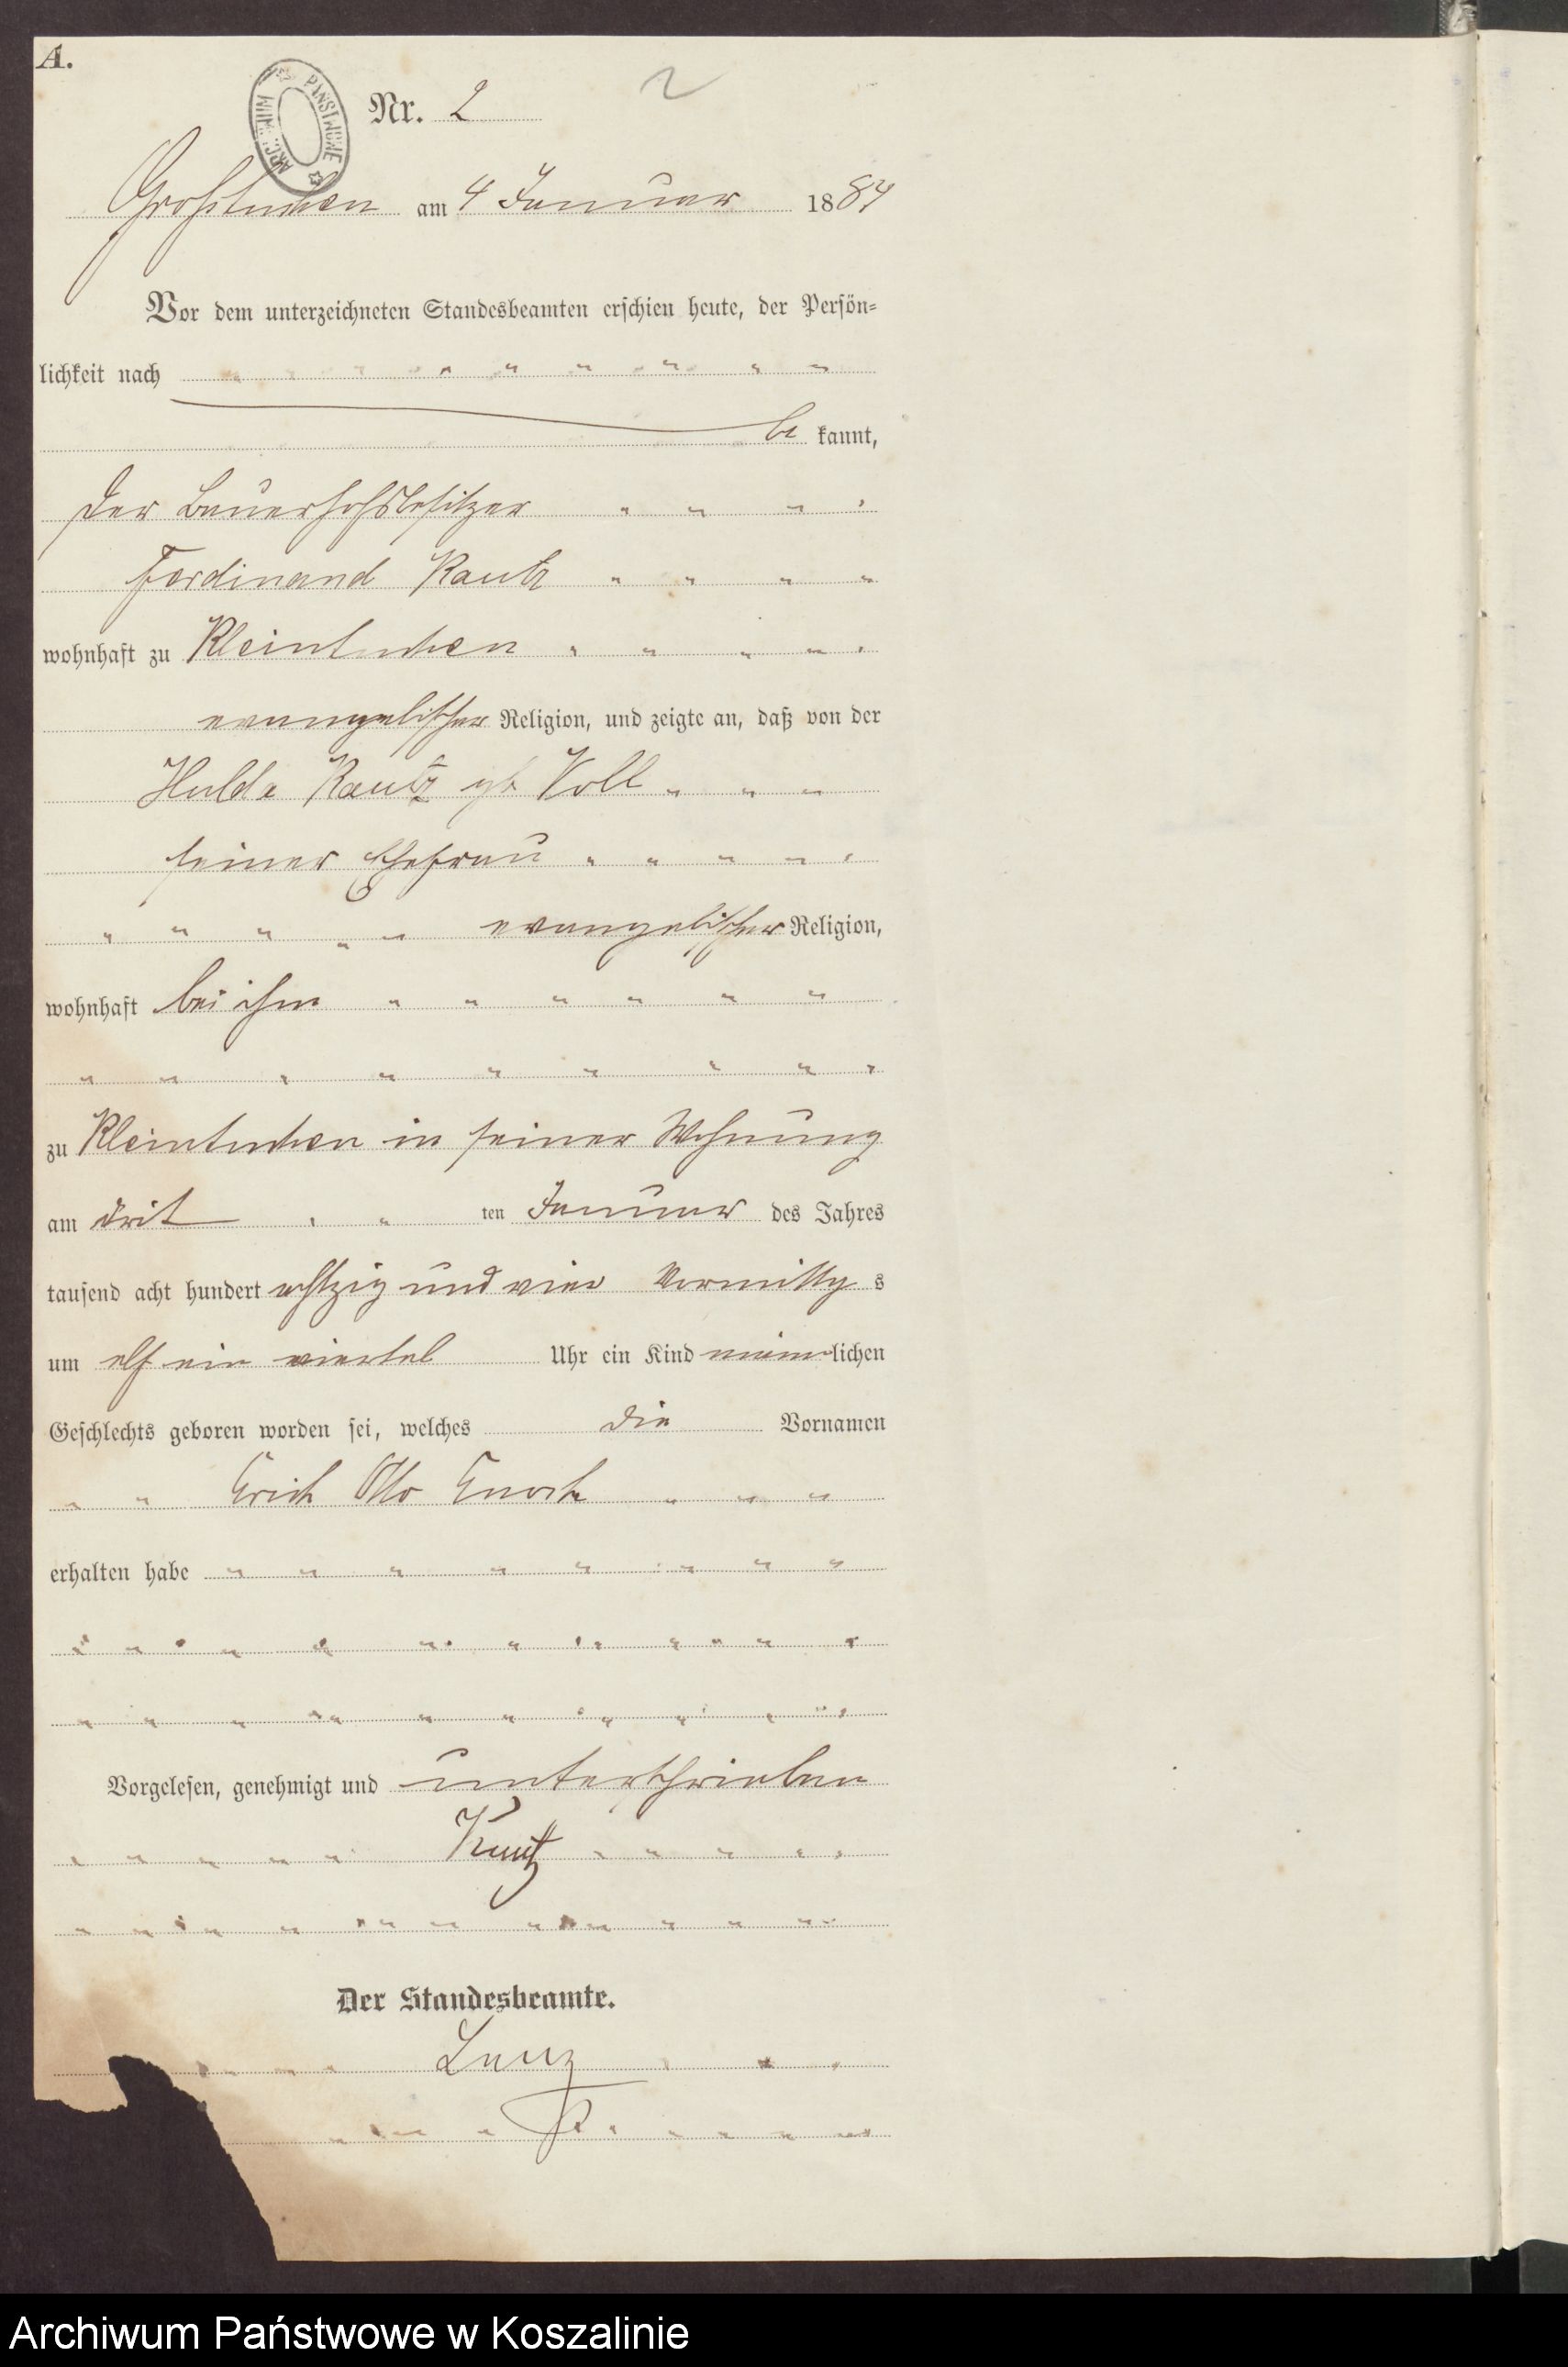 A.
Nr. 2
2
Großtuchen am 4 Januar 1884
Vor dem unterzeichneten Standesbeamten erschien heute, der Persön=
lichkeit nach
be kannt,
der Bauerhofsbesitzer
Ferdinand Kautz
wohnhaft zu Kleintuchen
evangelischer Religion, und zeigte an, daß von der
Hulda Kautz gb Voll
seiner Ehefrau
evangelischer Religion,
wohnhaft bei ihm
zu Kleintuchen in seiner Wohnung
am drit ten Januar des Jahres
tausend acht hundert achtzig und vier Vormittags
um elf ein viertel Uhr ein Kind männlichen
Geschlechts geboren worden sei, welches die Vornamen
Erich Otto
erhalten habe
Vorgelesen, genehmigt und unterschrieben
Kautz
Der Standesbeamte.
Archiwum Państwowe w Koszalinie